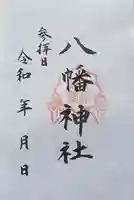 八幡神社
参拝日
令和　年　月　日